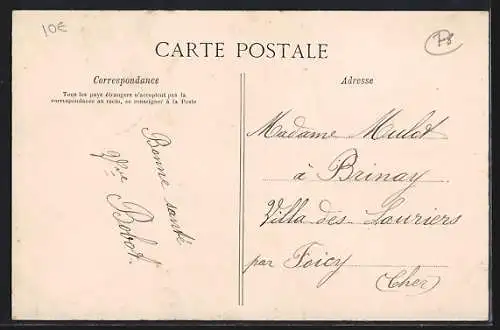 10€
F8
CARTE POSTALE
Correspondance
Tous les pays étrangers n'acceptent pas la
correspondance au recto, se renseigner à la Poste
Bonne santé
Vve Bobot.
Adresse
Madame Mulot
à Brinay
Villa des Lauriers
par Foicy
(Cher)